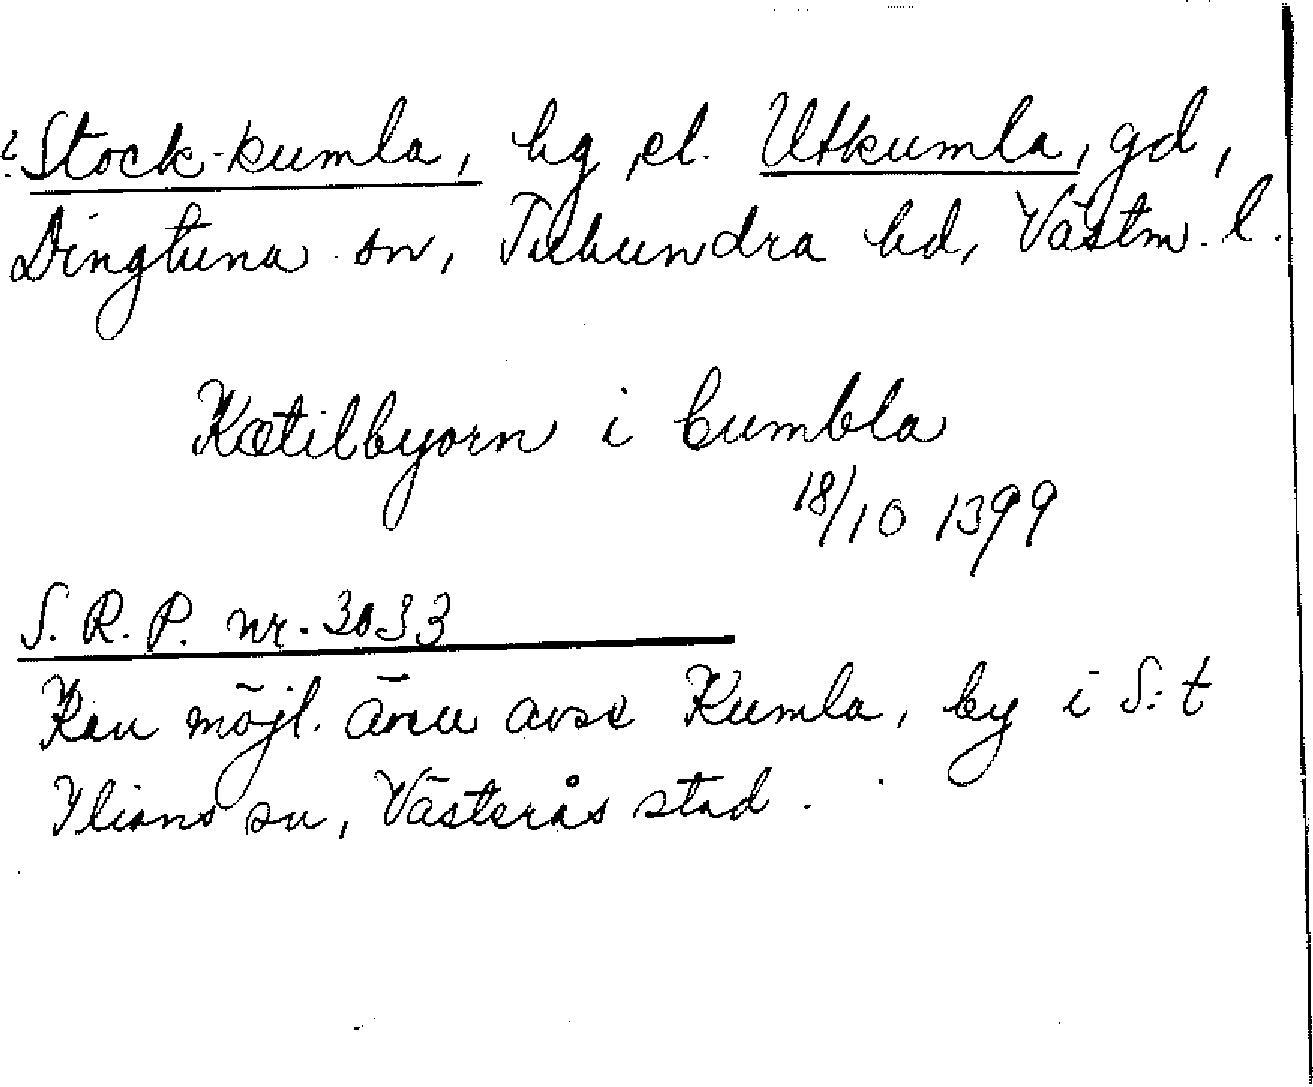 ? Stock-kumla, by, el. Utkumla, gd,
Dingtuna sn, Tuhundra hd, Västm. l.
Kætilbyorn i Cumbla
18/10 1399
S. R. P. nr. 3033
Kan möjl. även avse Kumla, by i S:t
Ilians sn, Västerås stad.